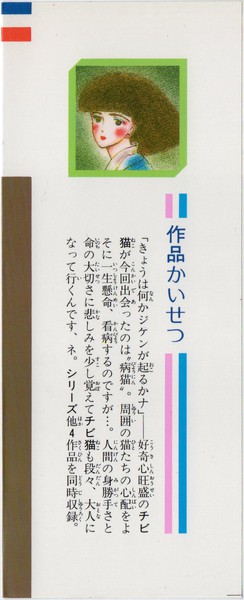 作品かいせつ
「きょうは何かジケンが起るかナ」──好奇心旺盛のチビ
猫が今回出会ったのは〝病猫〟。周囲の猫たちの心配をよ
そに一生懸命、看病するのですが…。人間の身勝手さと
命の大切さに悲しみを少し覚えてチビ猫も段々、大人に
なって行くんです、ネ。シリーズ他4作品を同時収録。